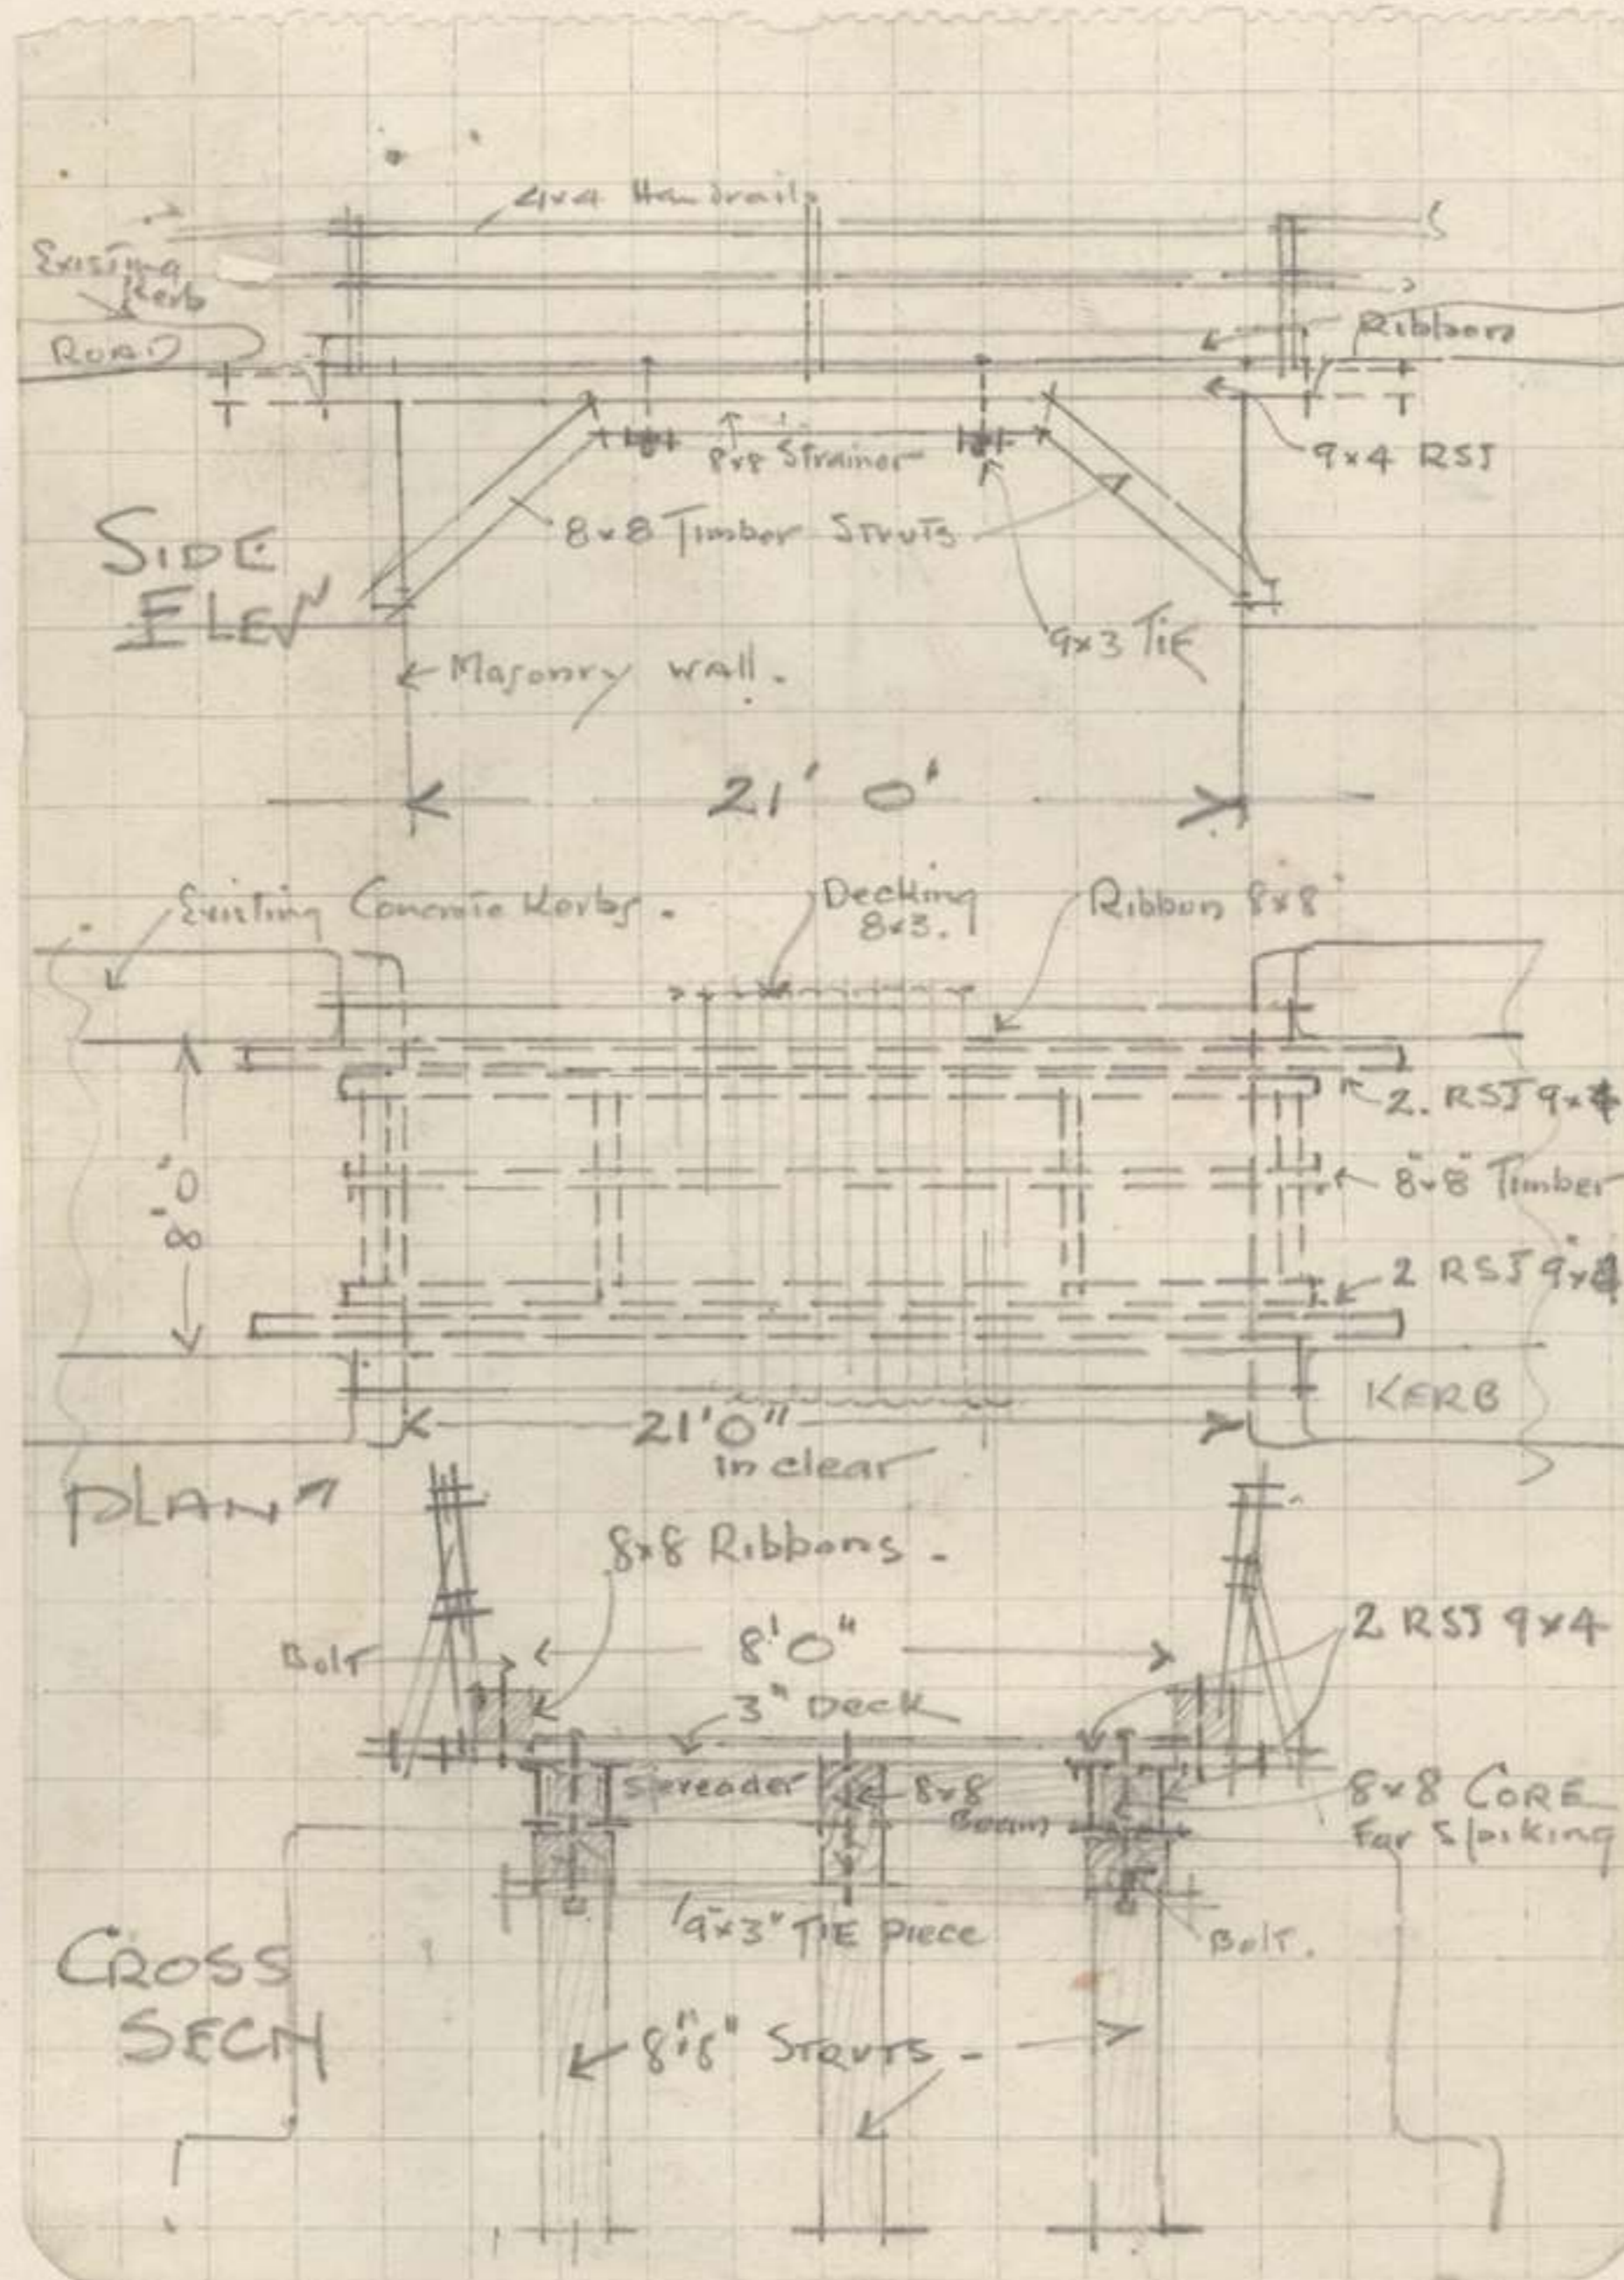 4x4 Handrails
Existing
Kerb
ROAD
Ribbon
8x8 Strainer
9x4 RSJ
8x8 Timber Struts
SIDE
ELEN
9x3 TIE
Masonry wall.
21' 0'
Existing Concrete Kerbs.
Decking
8x3.
Ribbon 8x8
2. RSJ 9x4
8'.0"
8"x8" Timber
2 RSJ 9"x4
KERB
21'0"
in clear
PLAN
8x8 Ribbons.
Bolt
8'0"
2 RSJ 9x4
3" Deck
Spreader
8x8
Beam
8x8 CORE
For Spiking
9"x3" TIE PIECE
Bolt.
CROSS
SECN
8"x8" STRUTS